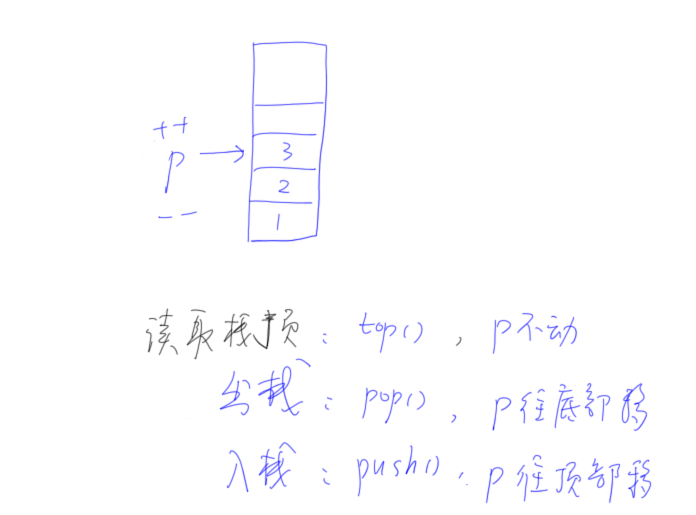 ++
p
--
3
2
1
读取栈顶：top()，p不动
出栈：pop()，p往底部移
入栈：push()，p往顶部移